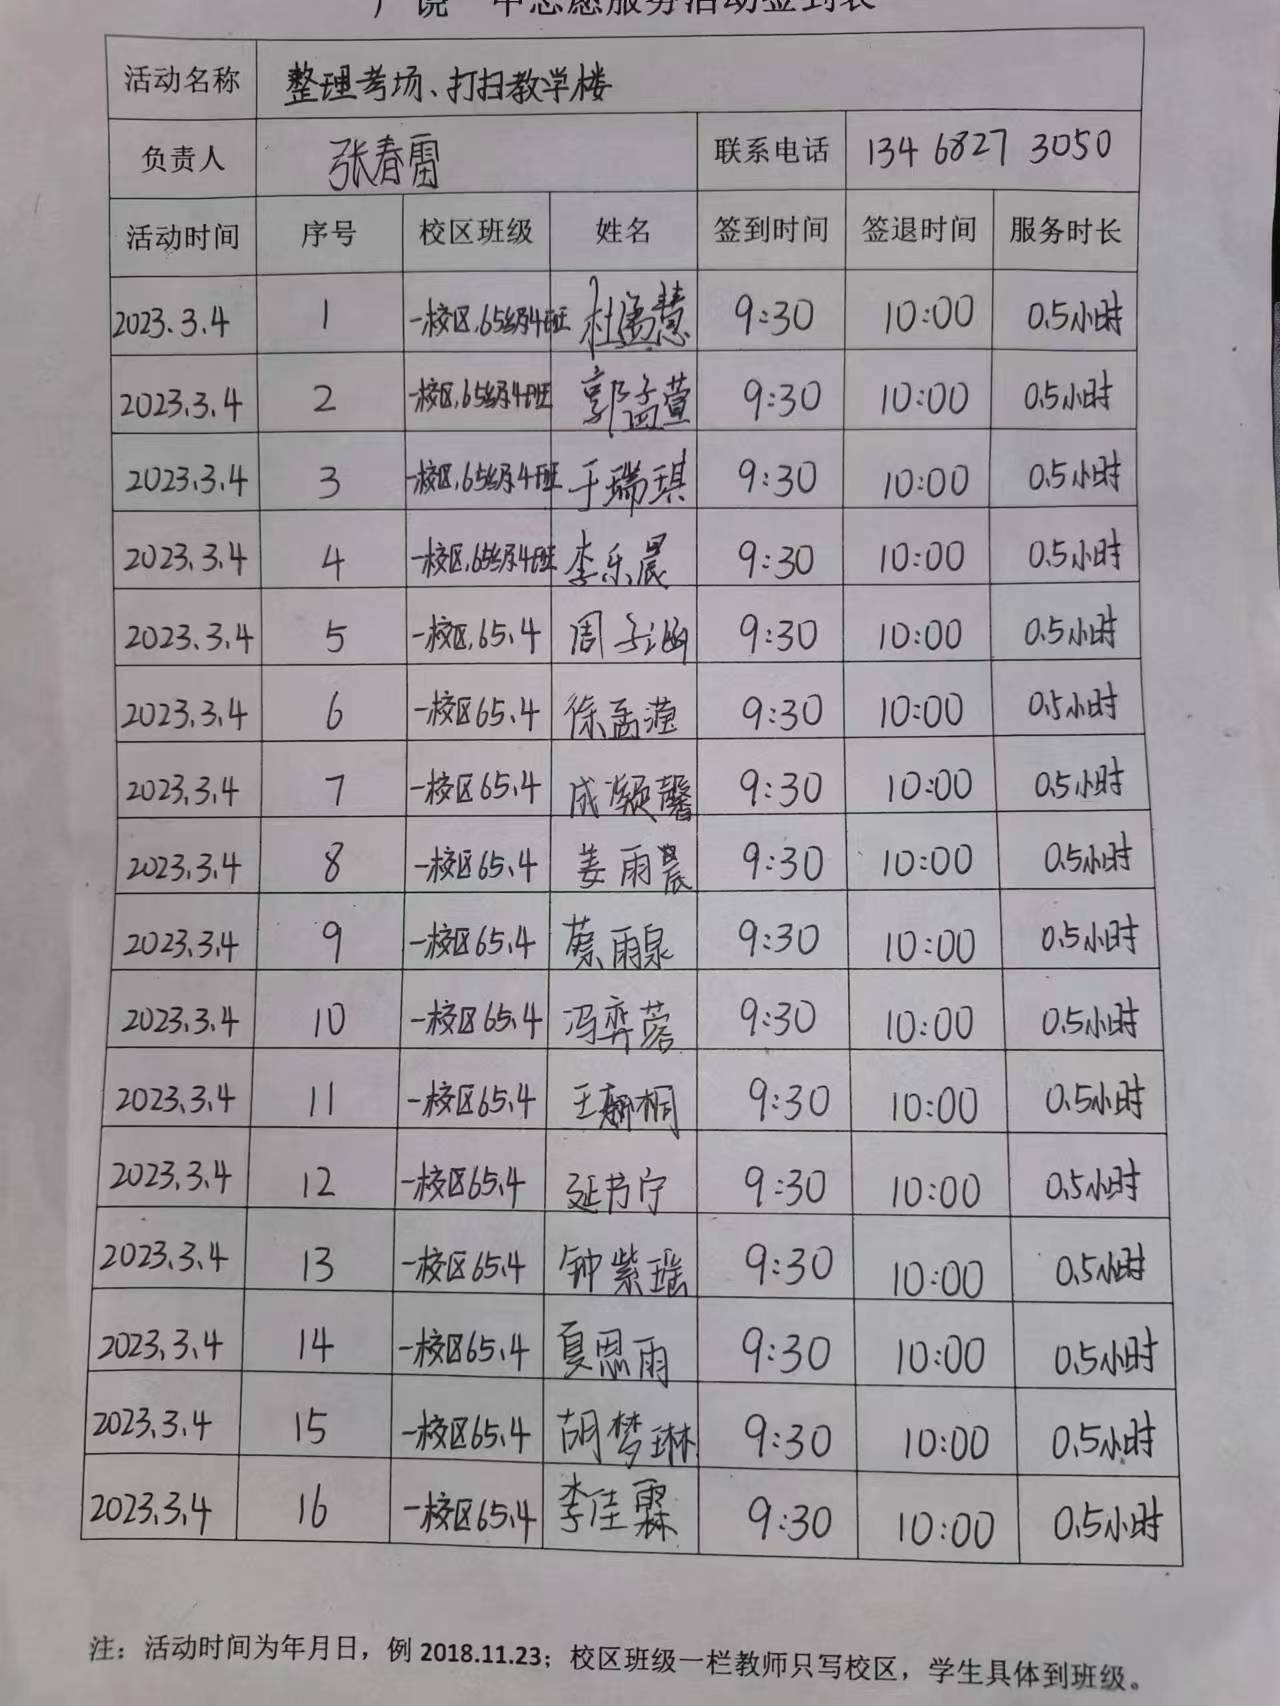 中志愿服务活动签到表
活动名称 整理考场、打扫教学楼
负责人 张春雷 联系电话 134 6827 3050
活动时间 序号 校区班级 姓名 签到时间 签退时间 服务时长
2023.3.4 1 一校区.65级4班 杜孟慧 9:30 10:00 0.5小时
2023.3.4 2 一校区.65级4班 郭孟萱 9:30 10:00 0.5小时
2023.3.4 3 一校区.65级4班 于瑞琪 9:30 10:00 0.5小时
2023.3.4 4 一校区.65级4班 李乐晨 9:30 10:00 0.5小时
2023.3.4 5 一校区.65.4 周子涵 9:30 10:00 0.5小时
2023.3.4 6 一校区65.4 徐孟滢 9:30 10:00 0.5小时
2023.3.4 7 一校区65.4 成凝馨 9:30 10:00 0.5小时
2023.3.4 8 一校区65.4 姜雨晨 9:30 10:00 0.5小时
2023.3.4 9 一校区65.4 蔡雨泉 9:30 10:00 0.5小时
2023.3.4 10 一校区65.4 冯弈蓉 9:30 10:00 0.5小时
2023.3.4 11 一校区65.4 王翻桐 9:30 10:00 0.5小时
2023.3.4 12 一校区65.4 延书宁 9:30 10:00 0.5小时
2023.3.4 13 一校区65.4 钟紫瑶 9:30 10:00 0.5小时
2023.3.4 14 一校区65.4 夏思雨 9:30 10:00 0.5小时
2023.3.4 15 一校区65.4 胡梦琳 9:30 10:00 0.5小时
2023.3.4 16 一校区65.4 李佳霖 9:30 10:00 0.5小时
注：活动时间为年月日，例 2018.11.23；校区班级一栏教师只写校区，学生具体到班级。